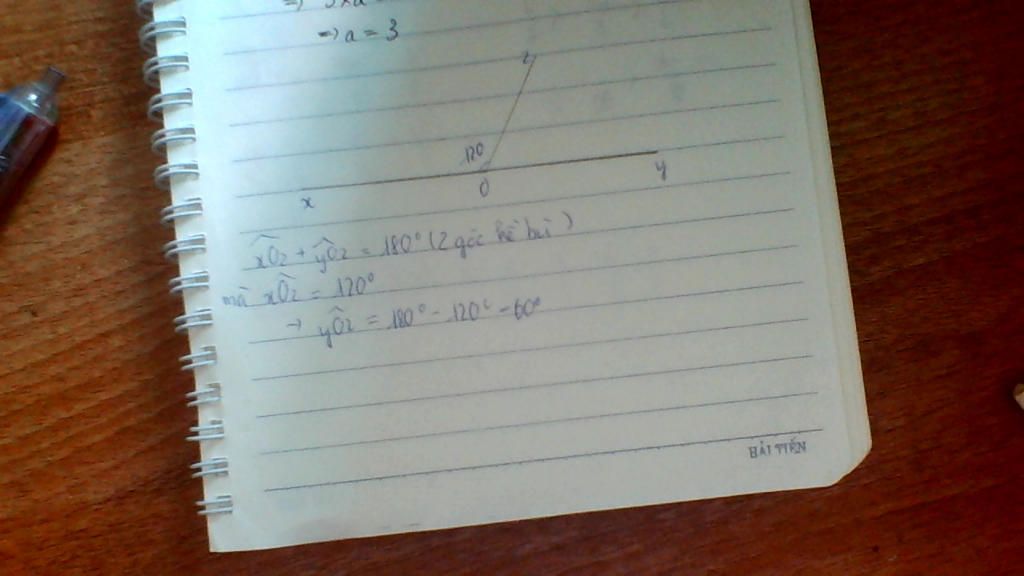 ⇒ a = 3
z
120
x
O
y
xÔz + yÔz = 180° (2 góc kề bù)
mà xÔz = 120°
→ yÔz = 180° - 120° = 60°
HẢI TIẾN